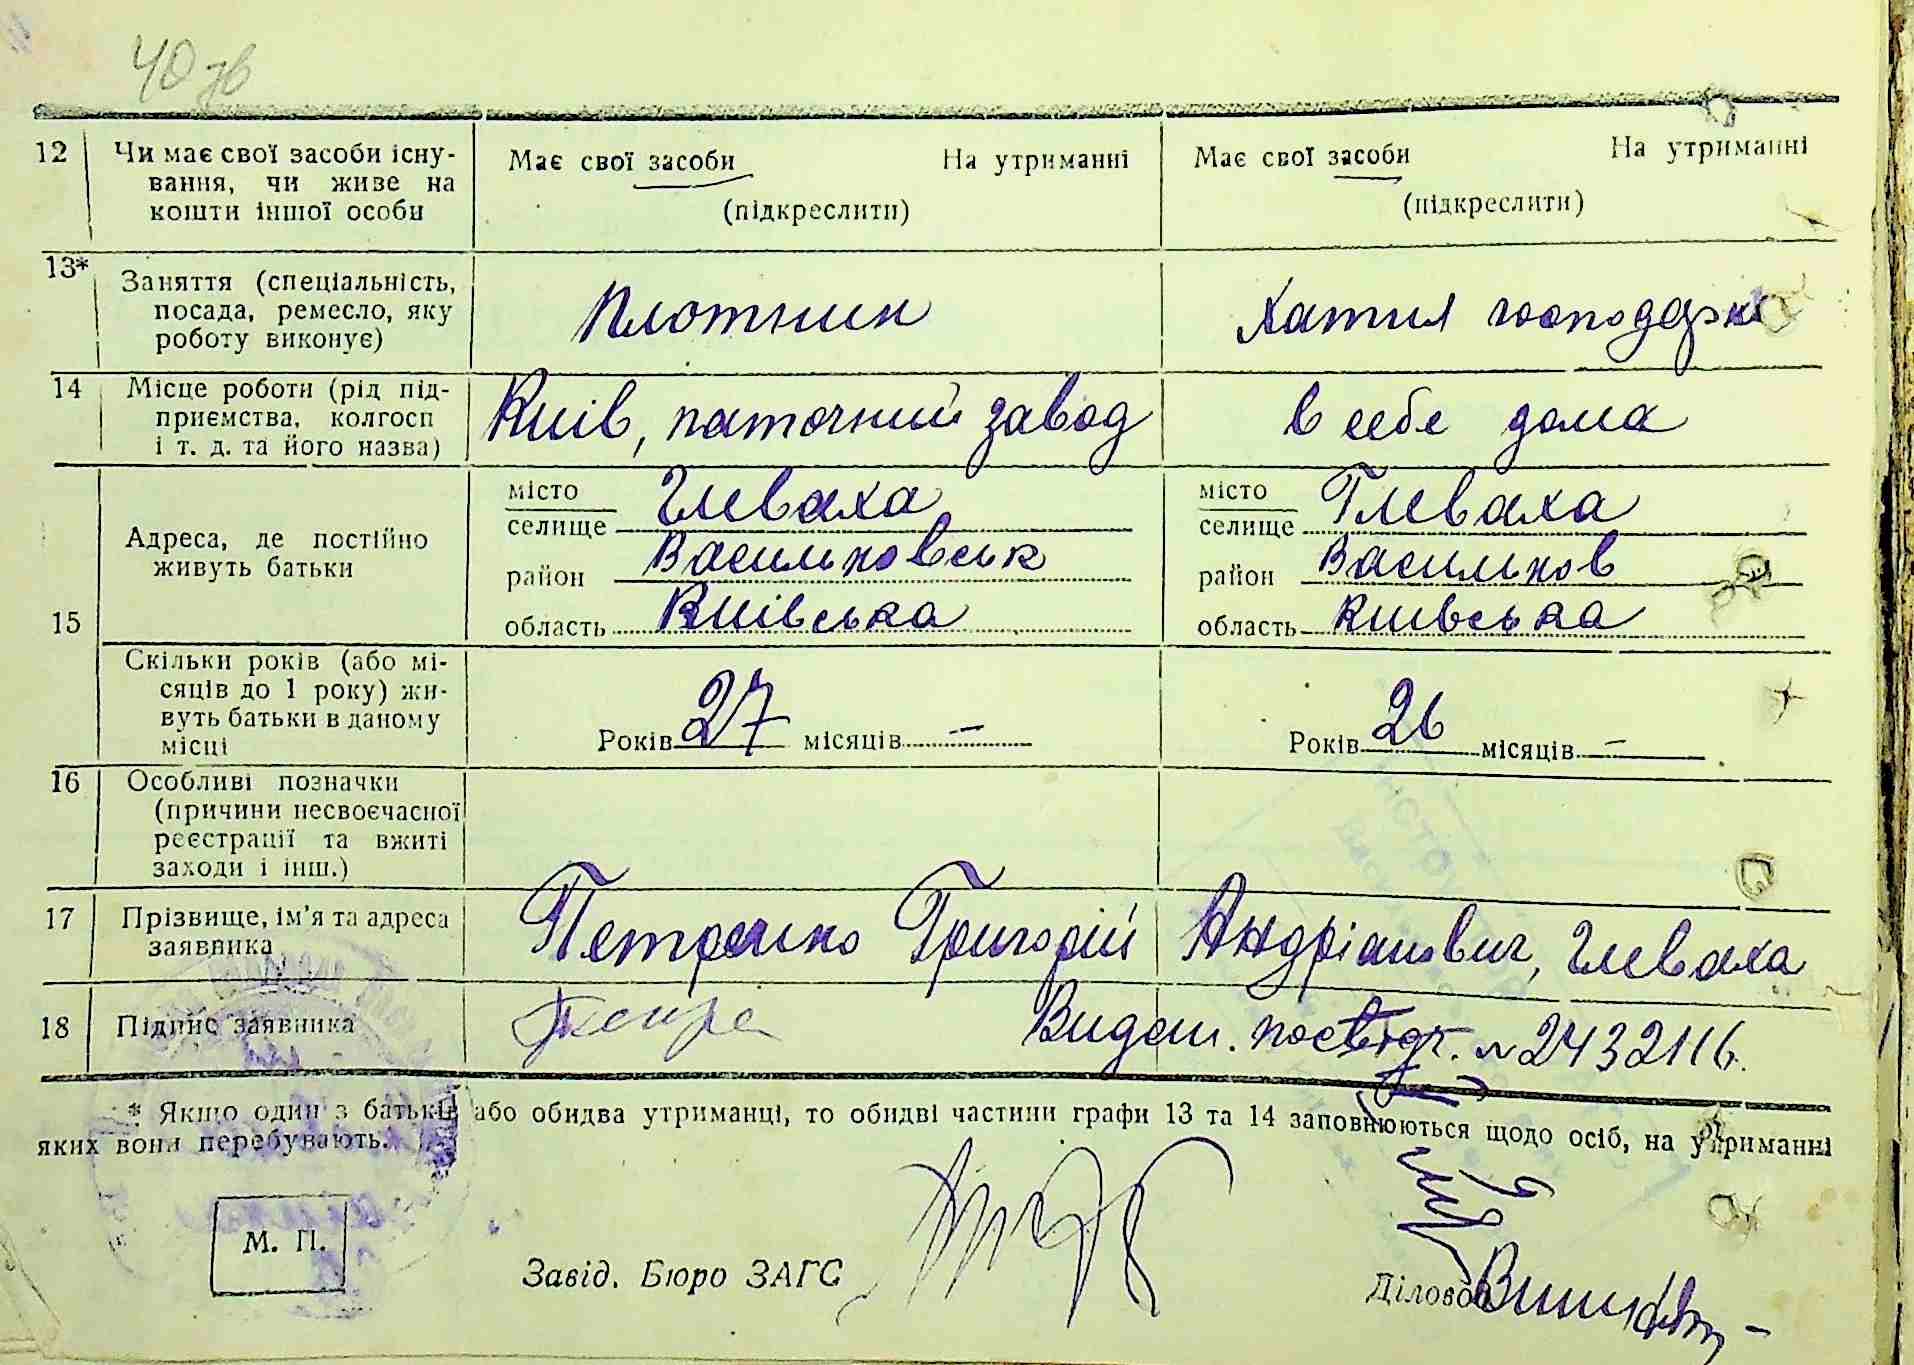 40 зв
12 Чи має свої засоби існу-
вання, чи живе на
кошти іншої особи
Має свої засоби На утриманні
(підкреслити)
Має свої засоби На утриманні
(підкреслити)
13* Заняття (спеціальність,
посада, ремесло, яку
роботу виконує)
Плотник
Хатня господарка
14 Місце роботи (рід під-
приємства, колгосп
і т. д. та його назва)
Київ, паточний завод
в себе дома
15 Адреса, де постійно
живуть батьки
місто
селище Глеваха
район Васильковськ
область Київська
місто
селище Глеваха
район Васильков
область Київська
Скільки років (або мі-
сяців до 1 року) жи-
вуть батьки в даному
місці
Років 27 місяців –
Років 26 місяців –
16 Особливі позначки
(причини несвоєчасної
реєстрації та вжиті
заходи і інш.)
17 Прізвище, ім'я та адреса
заявника
Петренко Григорій Андріанович, Глеваха
18 Підпис заявника
Видан. посвідч. № 2432116.
* Якщо один з батьків або обидва утриманці, то обидві частини графи 13 та 14 заповнюються щодо осіб, на утриманні
яких вони перебувають.
М. П.
Завід. Бюро ЗАГС
Діловод